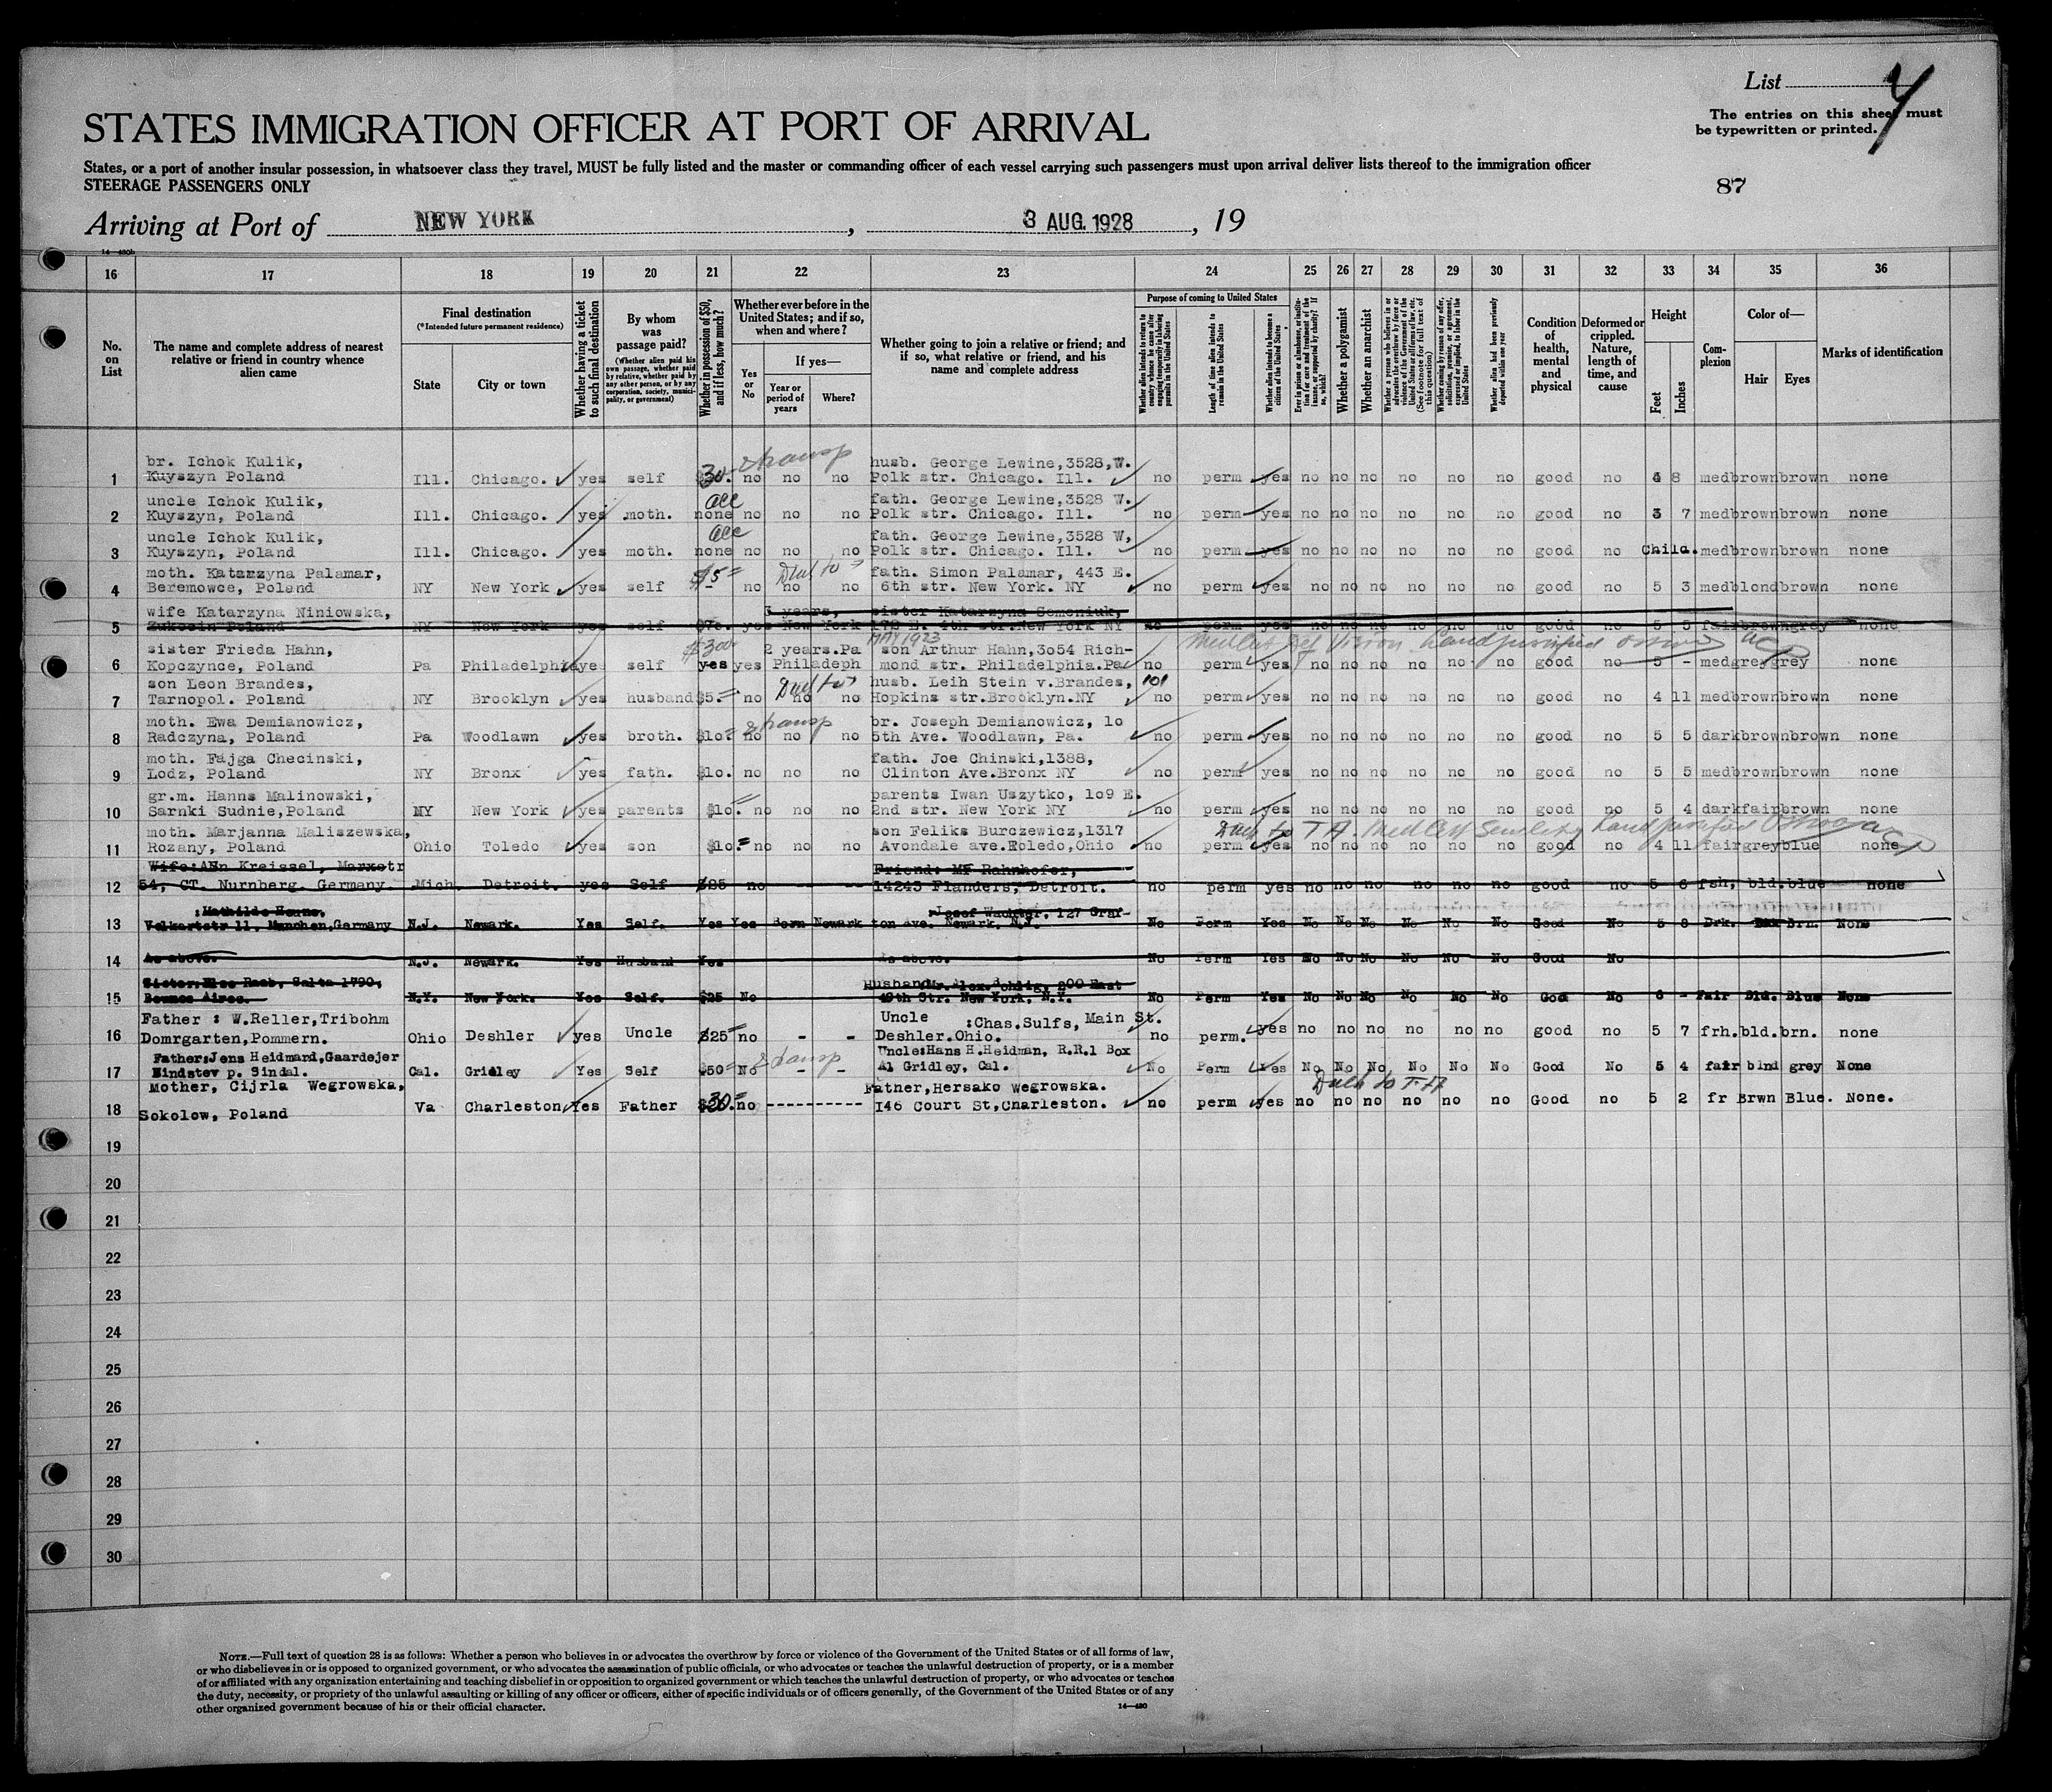 List 4
The entries on this sheet must
be typewritten or printed.
STATES IMMIGRATION OFFICER AT PORT OF ARRIVAL
States, or a port of another insular possession, in whatsoever class they travel, MUST be fully listed and the master or commanding officer of each vessel carrying such passengers must upon arrival deliver lists thereof to the immigration officer
STEERAGE PASSENGERS ONLY
87
Arriving at Port of NEW YORK, 3 AUG. 1928, 19
14—430b
16 17 18 19 20 21 22 23 24 25 26 27 28 29 30 31 32 33 34 35 36
No. on List
The name and complete address of nearest relative or friend in country whence alien came
Final destination
(*Intended future permanent residence)
State City or town
Whether having a ticket to such final destination
By whom was passage paid?
(Whether alien paid his own passage, whether paid by relative, whether paid by any other person, or by any corporation, society, municipality, or government)
Whether in possession of $50, and if less, how much?
Whether ever before in the United States; and if so, when and where?
Yes or No
If yes—
Year or period of years Where?
Whether going to join a relative or friend; and if so, what relative or friend, and his name and complete address
Purpose of coming to United States
Length of time alien intends to remain in the United States
Whether alien intends to become a citizen of the United States
Whether a polygamist
Whether an anarchist
Whether alien had been previously deported within one year
Condition of health, mental and physical
Deformed or crippled. Nature, length of time, and cause
Height
Feet Inches
Complexion
Color of—
Hair Eyes
Marks of identification
br. Ichok Kulik, & transp husb. George Lewine,3528,W.
1 Kuyszyn Poland Ill. Chicago. yes self 30. no no no Polk str. Chicago. Ill. no perm yes no no no no no no good no 4 8 med brown brown none
uncle Ichok Kulik, acc fath. George Lewine,3528 W.
2 Kuyszyn, Poland Ill. Chicago. yes moth. none no no no Polk str. Chicago. Ill. no perm yes no no no no no no good no 3 7 med brown brown none
uncle Ichok Kulik, acc fath. George Lewine,3528 W,
3 Kuyszyn, Poland Ill. Chicago. yes moth. none no no no Polk str. Chicago. Ill. no perm yes no no no no no no good no Child. med brown brown none
moth. Katarzyna Palamar, fath. Simon Palamar, 443 E.
4 Beremowce, Poland NY New York yes self $5 no no no 6th str. New York. NY no perm yes no no no no no no good no 5 3 med blond brown none
wife Katarzyna Niniowska, 3 years, sister Katarzyna Semeniuk,
5 Zukocin Poland NY New York yes self $7o. yes New York 178 E. 4th str.New York NY no perm yes no no no no no no good no 5 5 fair brown grey none
sister Frieda Hahn, $300 2 years.Pa MAY 1923 son Arthur Hahn,3o54 Rich-
6 Kopczynce, Poland Pa Philadelphia yes self yes yes Philadeph mond str. Philadelphia.Pa no perm yes no no no no no no good no 5 - med grey grey none
son Leon Brandes, husb. Leih Stein v.Brandes, 101
7 Tarnopol. Poland NY Brooklyn yes husband $5. no no no Hopkins str.Brooklyn.NY no perm yes no no no no no no good no 4 11 med brown brown none
moth. Ewa Demianowicz, & transp br. Joseph Demianowicz, 1o
8 Radczyna, Poland Pa Woodlawn yes broth. $1o. no no no 5th Ave. Woodlawn, Pa. no perm yes no no no no no no good no 5 5 dark brown brown none
moth. Fajga Checinski, fath. Joe Chinski,1388,
9 Lodz, Poland NY Bronx yes fath. $1o. no no no Clinton Ave.Bronx NY no perm yes no no no no no no good no 5 5 med brown brown none
gr.m. Hanns Malinowski, parents Iwan Uszytko, 1o9 E.
10 Sarnki Sudnie,Poland NY New York yes parents $1o. no no no 2nd str. New York NY no perm yes no no no no no no good no 5 4 dark fair brown none
moth. Marjanna Maliszewska, son Feliks Burczewicz,1317
11 Rozany, Poland Ohio Toledo yes son $1o. no no no Avondale ave.Eoledo,Ohio no perm yes no no no no no no good no 4 11 fair grey blue none
Wife:ANn Kreissel, Marxstr Friend: MF Rahnhofer,
12 54, CT. Nurnberg. Germany. Mich Detroit. yes Self $25 no - - 14243 Flanders, Detroit. no perm yes no no no no no no good no 5 6 fsh, bld. blue none
:Mathilde Josef Wachter, 127 Graf-
13 Volkartstr 11, Munchen,Germany N.J. Newark. Yes Self. Yes Yes Born Newark ton Ave. Newark, N.J. No Perm Yes No No No No No No Good No 5 8 Drk. Brn. None
14 As above. N.J. Newark. Yes Husband Yes As above. No Perm Yes No No No No No No Good No
Sister:Else Raab, Salta 1790, Husband 200 East
15 Beunos Aires. N.Y. New York. Yes Self. $25 No 49th Str. New York, N.Y. No Perm Yes No No No No No No Good No 6 - Fair Bld. Blue None
Father : W.Reller,Tribohm Uncle :Chas.Sulfs, Main St.
16 Domrgarten,Pommern. Ohio Deshler yes Uncle $25 no - - Deshler.Ohio. no perm. yes no no no no no no good no 5 7 frh. bld. brn. none
Father:Jens Heidmard,Gaardejer & transp Uncle:Hans H.Heidman, R.R.1 Box
17 Bindstev p. Sindal. Cal. Gridley Yes Self $50 No - - A1 Gridley, Cal. No Perm Yes No No No No No No Good No 5 4 fair blnd grey None
Mother, Cijrla Wegrowska, Father,Hersako Wegrowska.
18 Sokolow, Poland Va Charleston Yes Father $30. no ---------- 146 Court St,Charleston. no perm yes no no no no no no Good no 5 2 fr Brwn Blue. None.
19
20
21
22
23
24
25
26
27
28
29
30
NOTE.—Full text of question 28 is as follows: Whether a person who believes in or advocates the overthrow by force or violence of the Government of the United States or of all forms of law,
or who disbelieves in or is opposed to organized government, or who advocates the assassination of public officials, or who advocates or teaches the unlawful destruction of property, or is a member
of or affiliated with any organization entertaining and teaching disbelief in or opposition to organized government or which teaches the unlawful destruction of property, or who advocates or teaches
the duty, necessity, or propriety of the unlawful assaulting or killing of any officer or officers, either of specific individuals or of officers generally, of the Government of the United States or of any
other organized government because of his or their official character.
14—430